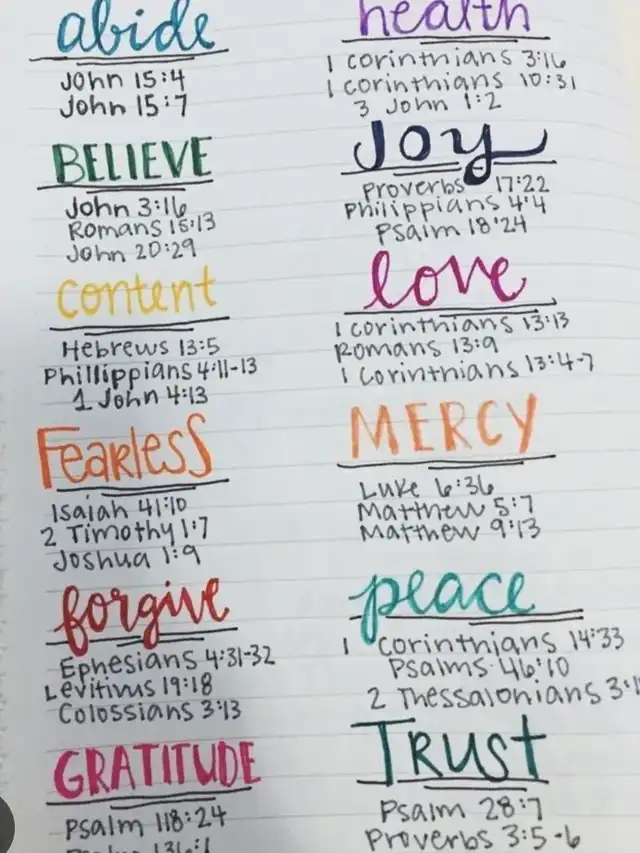 abide
John 15:4
John 15:7
BELIEVE
John 3:16
Romans 15:13
John 20:29
content
Hebrews 13:5
Phillippians 4:11-13
1 John 4:13
Fearless
Isaiah 41:10
2 Timothy 1:7
Joshua 1:9
forgive
Ephesians 4:31-32
Levitivus 19:18
Colossians 3:13
GRATITUDE
Psalm 118:24
health
1 corinthians 3:16
1 corinthians 10:31
3 John 1:2
Joy
Proverbs 17:22
Philippians 4:4
Psalm 18:24
love
1 corinthians 13:13
Romans 13:9
1 Corinthians 13:4-7
MERCY
Luke 6:36
Matthew 5:7
Matthew 9:13
peace
1 Corinthians 14:33
Psalms 46:10
2 Thessalonians
Trust
Psalm 28:7
Proverbs 3:5-6